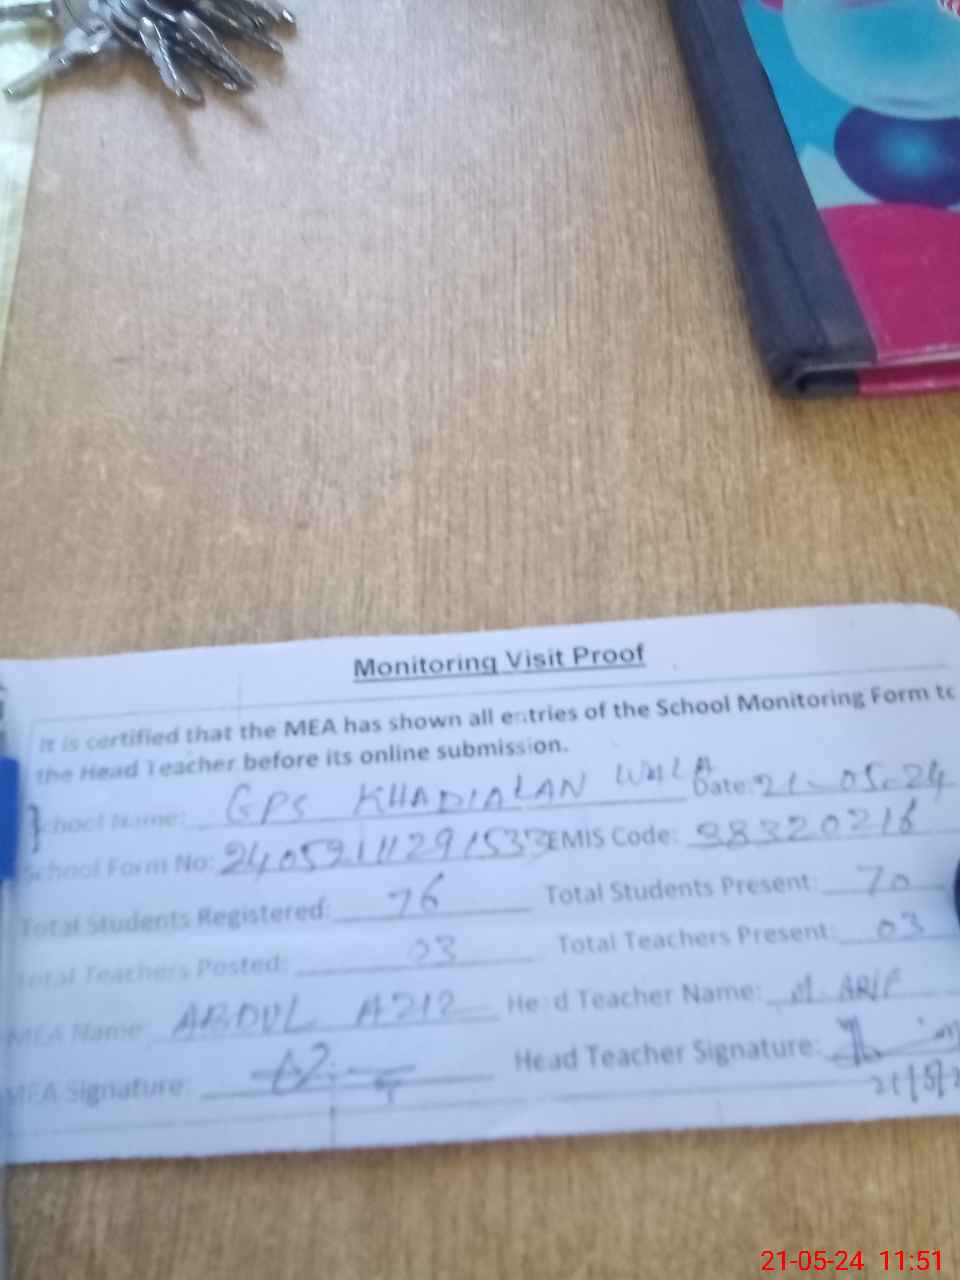 Monitoring Visit Proof
It is certified that the MEA has shown all entries of the School Monitoring Form to
the Head Teacher before its online submission.
School Name: GPS KHADIALAN WALA Date: 21-05-24
School Form No: EMIS Code: 38320216
Total Students Registered: 76 Total Students Present: 70
Total Teachers Posted: 03 Total Teachers Present: 03
MEA Name: ABDUL AZIZ Head Teacher Name: M. ARIF
MEA Signature: Head Teacher Signature:
21-05-24 11:51